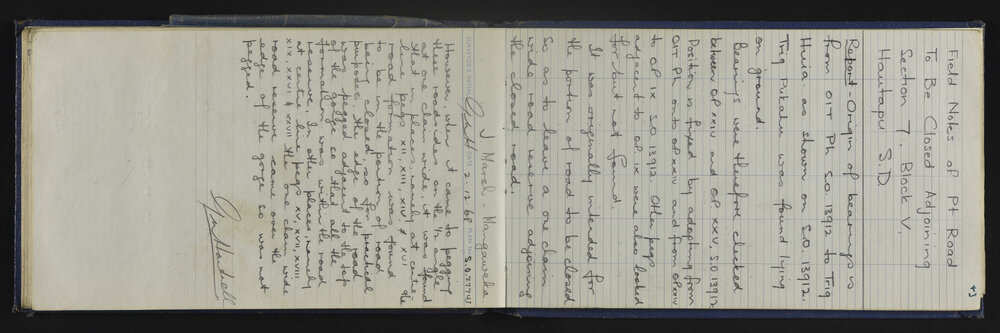 43
Field Notes of Pt Road
To Be Closed Adjoining
Section 7, Block V.
Hautapu S.D
Report - Origin of bearings is
from OIT Ph SO. 13912 to Trig
Huia as shown on S.O. 13912.
Trig Pukatu was found lying
on ground.
Bearings were therefore checked
between OP XXIV and OP XXV. S.O 13912
Position is fixed by adopting from
OIT Ph onto OP XXIV and from OP XXIV
to OP IX S.O 13912. Other pegs
adjacent to OP IX were also looked
for but not found.
It was originally intended for
the portion of road to be closed
so as to leave a one chain
wide road reserve adjoining
the closed road.
J Marsh. Mangaweka
DATE 2.12.68 PLAN No S.O. 27743
However when it came to pegging
these road sides on the 1/2 angle
at one chain wide, it was found
that in places, namely at centre
line pegs XII, XIII, XIV, & XVI the
road formation was found
to be in the portion of road
being closed, so for practical
purposes the edge of the road
was pegged adjacent to the top
of the gorge so that all the
formation was within the road
reserve. In other places, namely
at centre line pegs XV, XVII, XVIII
XIX, XXVI & XXVII the one chain wide
road reserve came over the
edge of the gorge so was not
pegged.